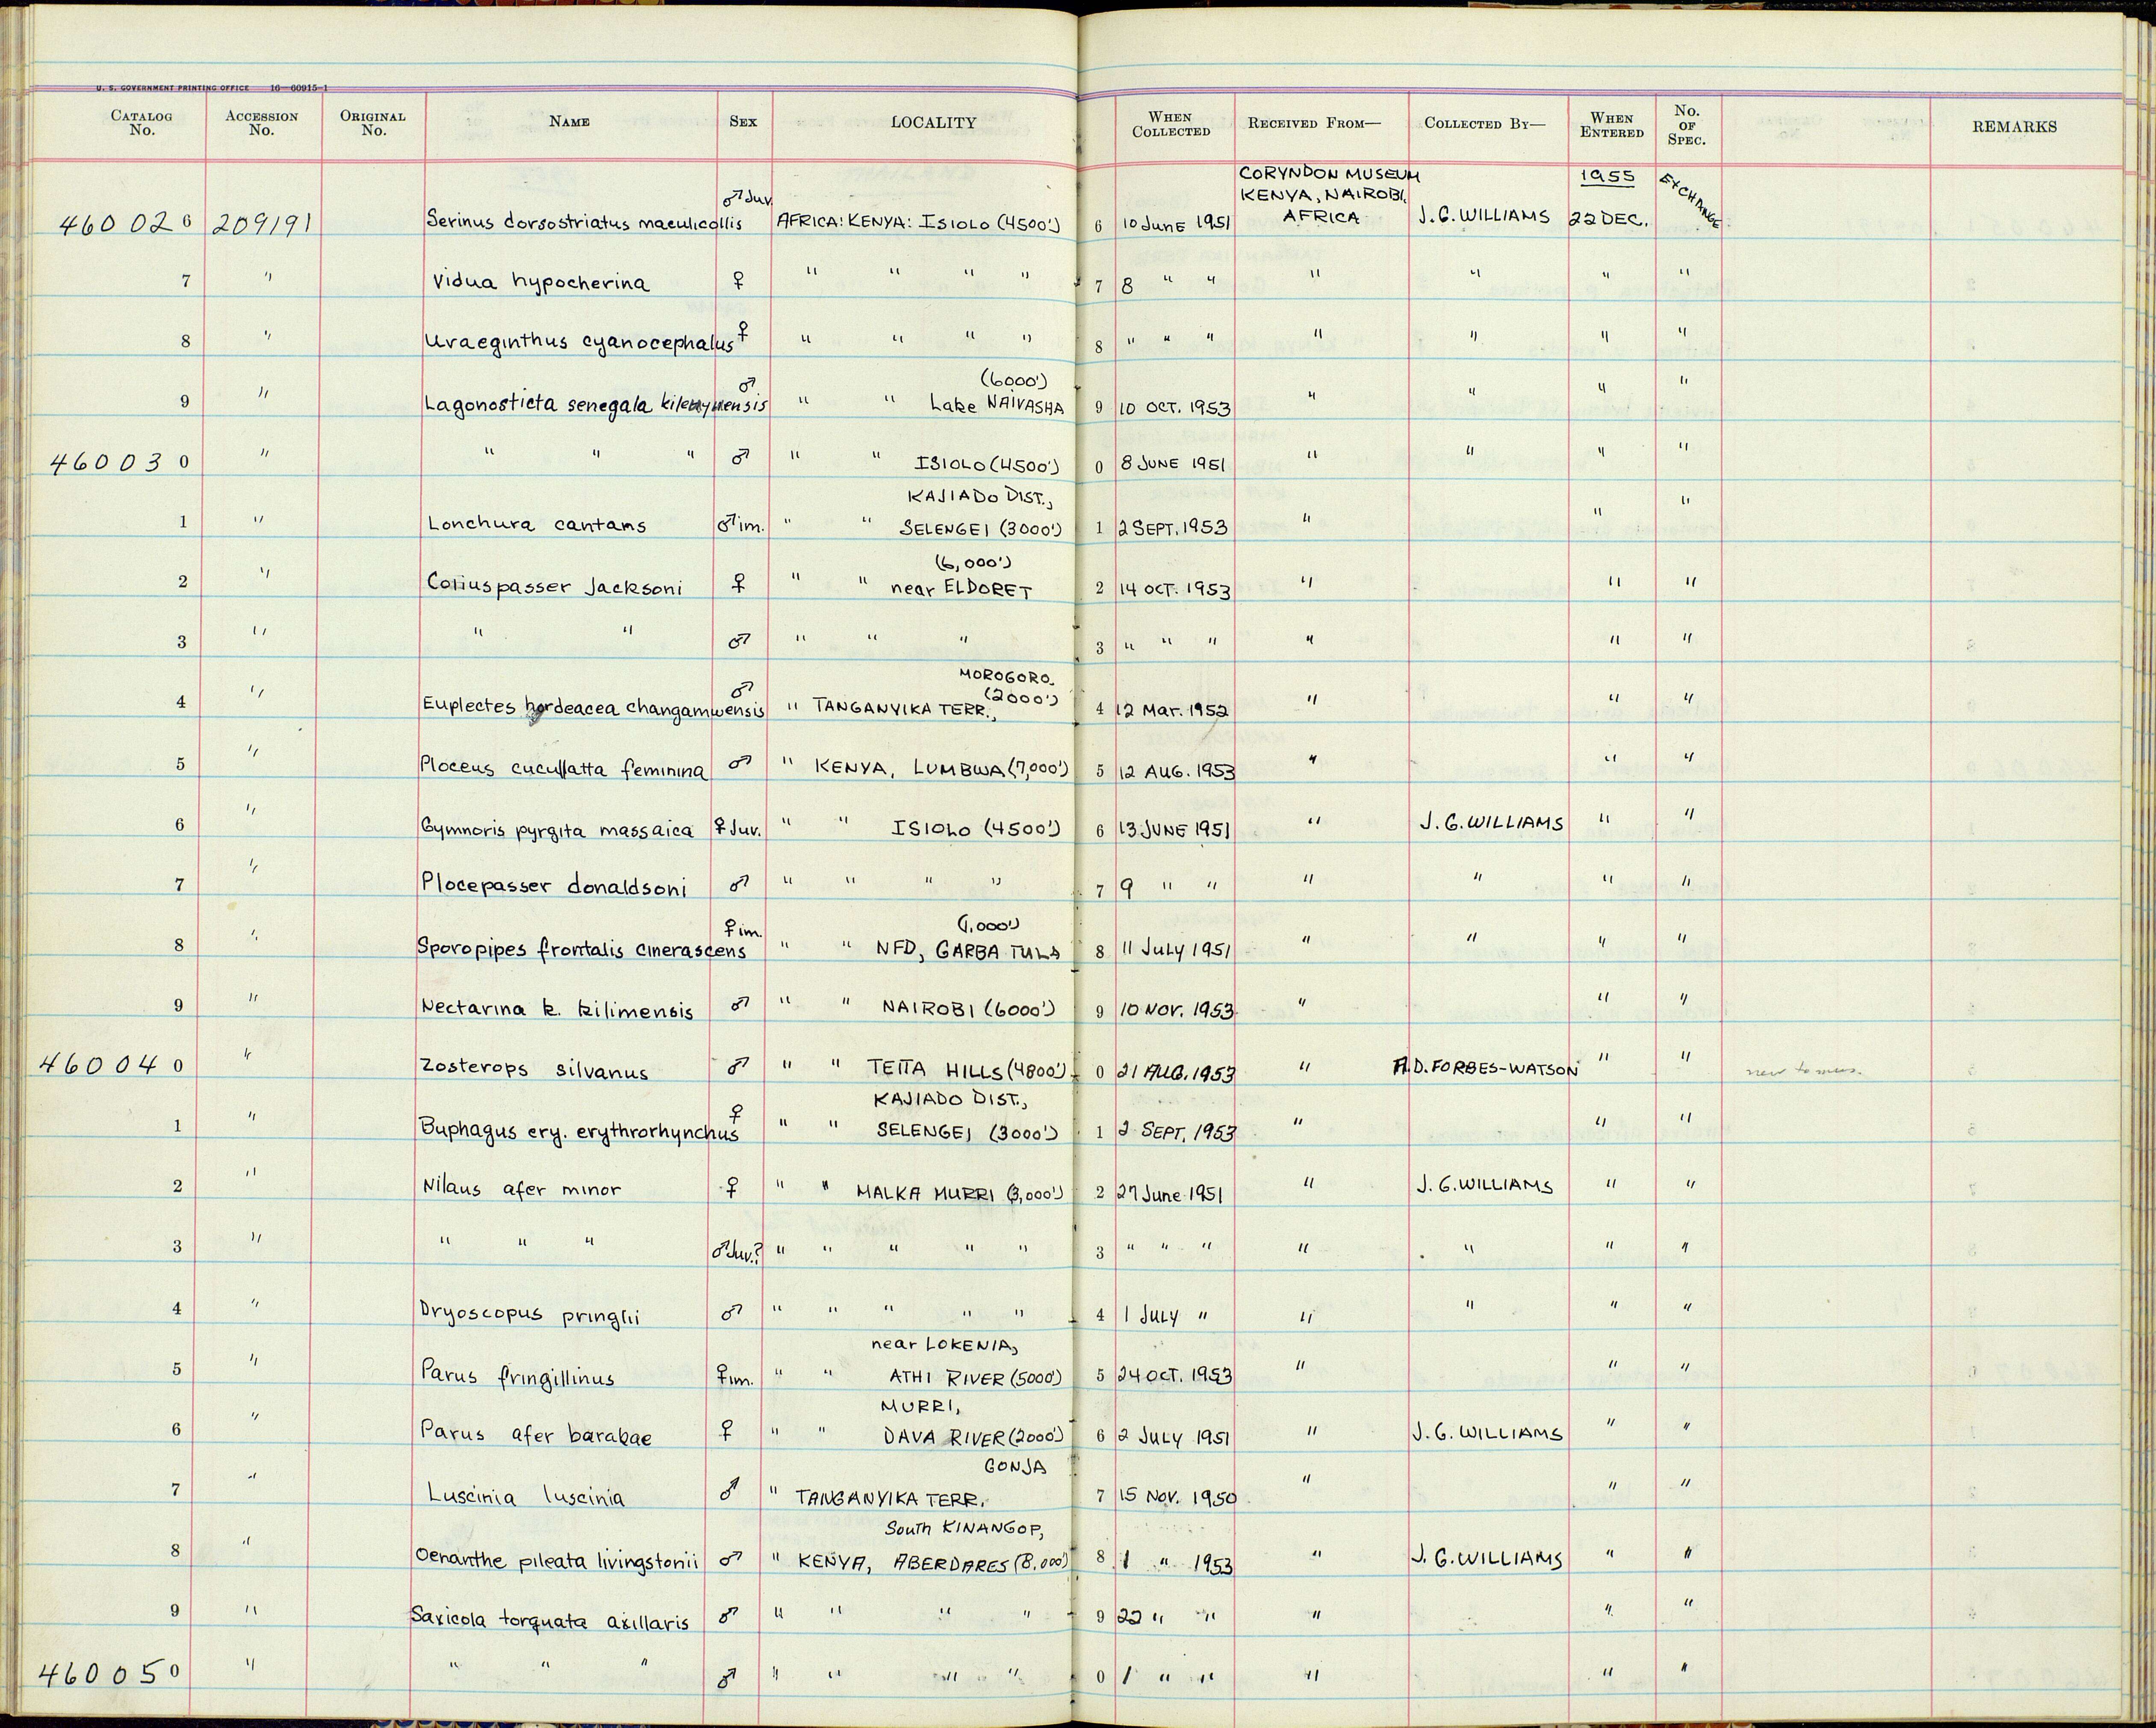 U. S. GOVERNMENT PRINTING OFFICE 16—60915-1
CATALOG No. ACCESSION No. ORIGINAL No. NAME SEX LOCALITY WHEN COLLECTED RECEIVED FROM— COLLECTED BY— WHEN ENTERED No. OF SPEC. REMARKS
CORYNDON MUSEUM 1955
♂ Juv. KENYA, NAIROBI, EXCHANGE
460026 209191 Serinus dorsostriatus maculicollis AFRICA: KENYA: ISIOLO (4500') 6 10 June 1951 AFRICA J.G. WILLIAMS 22 DEC.
7 " Vidua hypocherina ♀ " " " " 7 8 " " " " " "
8 " Uraeginthus cyanocephalus ♀ " " " " 8 " " " " " " "
♂ (6000')
9 " Lagonosticta senegala " " Lake NAIVASHA 9 10 OCT. 1953 " " " "
460030 " " " " ♂ " " ISIOLO (4500') 0 8 JUNE 1951 " " " "
KAJIADO DIST.,
1 " Lonchura cantans ♂ im. " " SELENGEI (3000') 1 2 SEPT. 1953 " " "
(6,000')
2 " Coriuspasser Jacksoni ♀ " " near ELDORET 2 14 OCT. 1953 " " "
3 " " " ♂ " " " 3 " " " " " "
MOROGORO.
♂ (2000')
4 " Euplectes hordeacea changamwensis " TANGANYIKA TERR., 4 12 Mar. 1952 " " "
5 " Ploceus cucullatta feminina ♂ " KENYA, LUMBWA (7,000') 5 12 AUG. 1953 " " "
6 " Gymnoris pyrgita massaica ♀ Juv. " " ISIOLO (4500') 6 13 JUNE 1951 " J. G. WILLIAMS " "
7 " Plocepasser donaldsoni ♂ " " " " 7 9 " " " " " "
♀ im. (1,000')
8 " Sporopipes frontalis cinerascens " " NFD, GARBA TULA 8 11 July 1951 " " " "
9 " Nectarina k. kilimensis ♂ " " NAIROBI (6000') 9 10 NOV. 1953 " " "
460040 " Zosterops silvanus ♂ " " TEITA HILLS (4800') 0 21 AUG. 1953 " A.D. FORBES-WATSON " " new to mus.
♀ KAJIADO DIST.,
1 " Buphagus ery. erythrorhynchus " " SELENGEI (3000') 1 2 SEPT. 1953 " " "
2 " Nilaus afer minor ♀ " " MALKA MURRI (3,000') 2 27 June 1951 " J. G. WILLIAMS " "
3 " " " " ♂ Juv.? " " " " " 3 " " " " " " "
4 " Dryoscopus pringlii ♂ " " " " " 4 1 July " " " " "
near LOKENIA,
5 " Parus fringillinus ♀ im. " " ATHI RIVER (5000') 5 24 OCT. 1953 " " "
MURRI,
6 " Parus afer barakae ♀ " " DAVA RIVER (2000') 6 2 July 1951 " J. G. WILLIAMS " "
GONJA
7 " Luscinia luscinia ♂ " TANGANYIKA TERR. 7 15 NOV. 1950 " " "
South KINANGOP,
8 " Oenanthe pileata livingstonii ♂ " KENYA, ABERDARES (8,000') 8 1 " 1953 " J. G. WILLIAMS " "
9 " Saxicola torquata axillaris ♂ " " " " 9 22 " " " " "
460050 " " " " ♂ " " " " 0 1 " " " " "